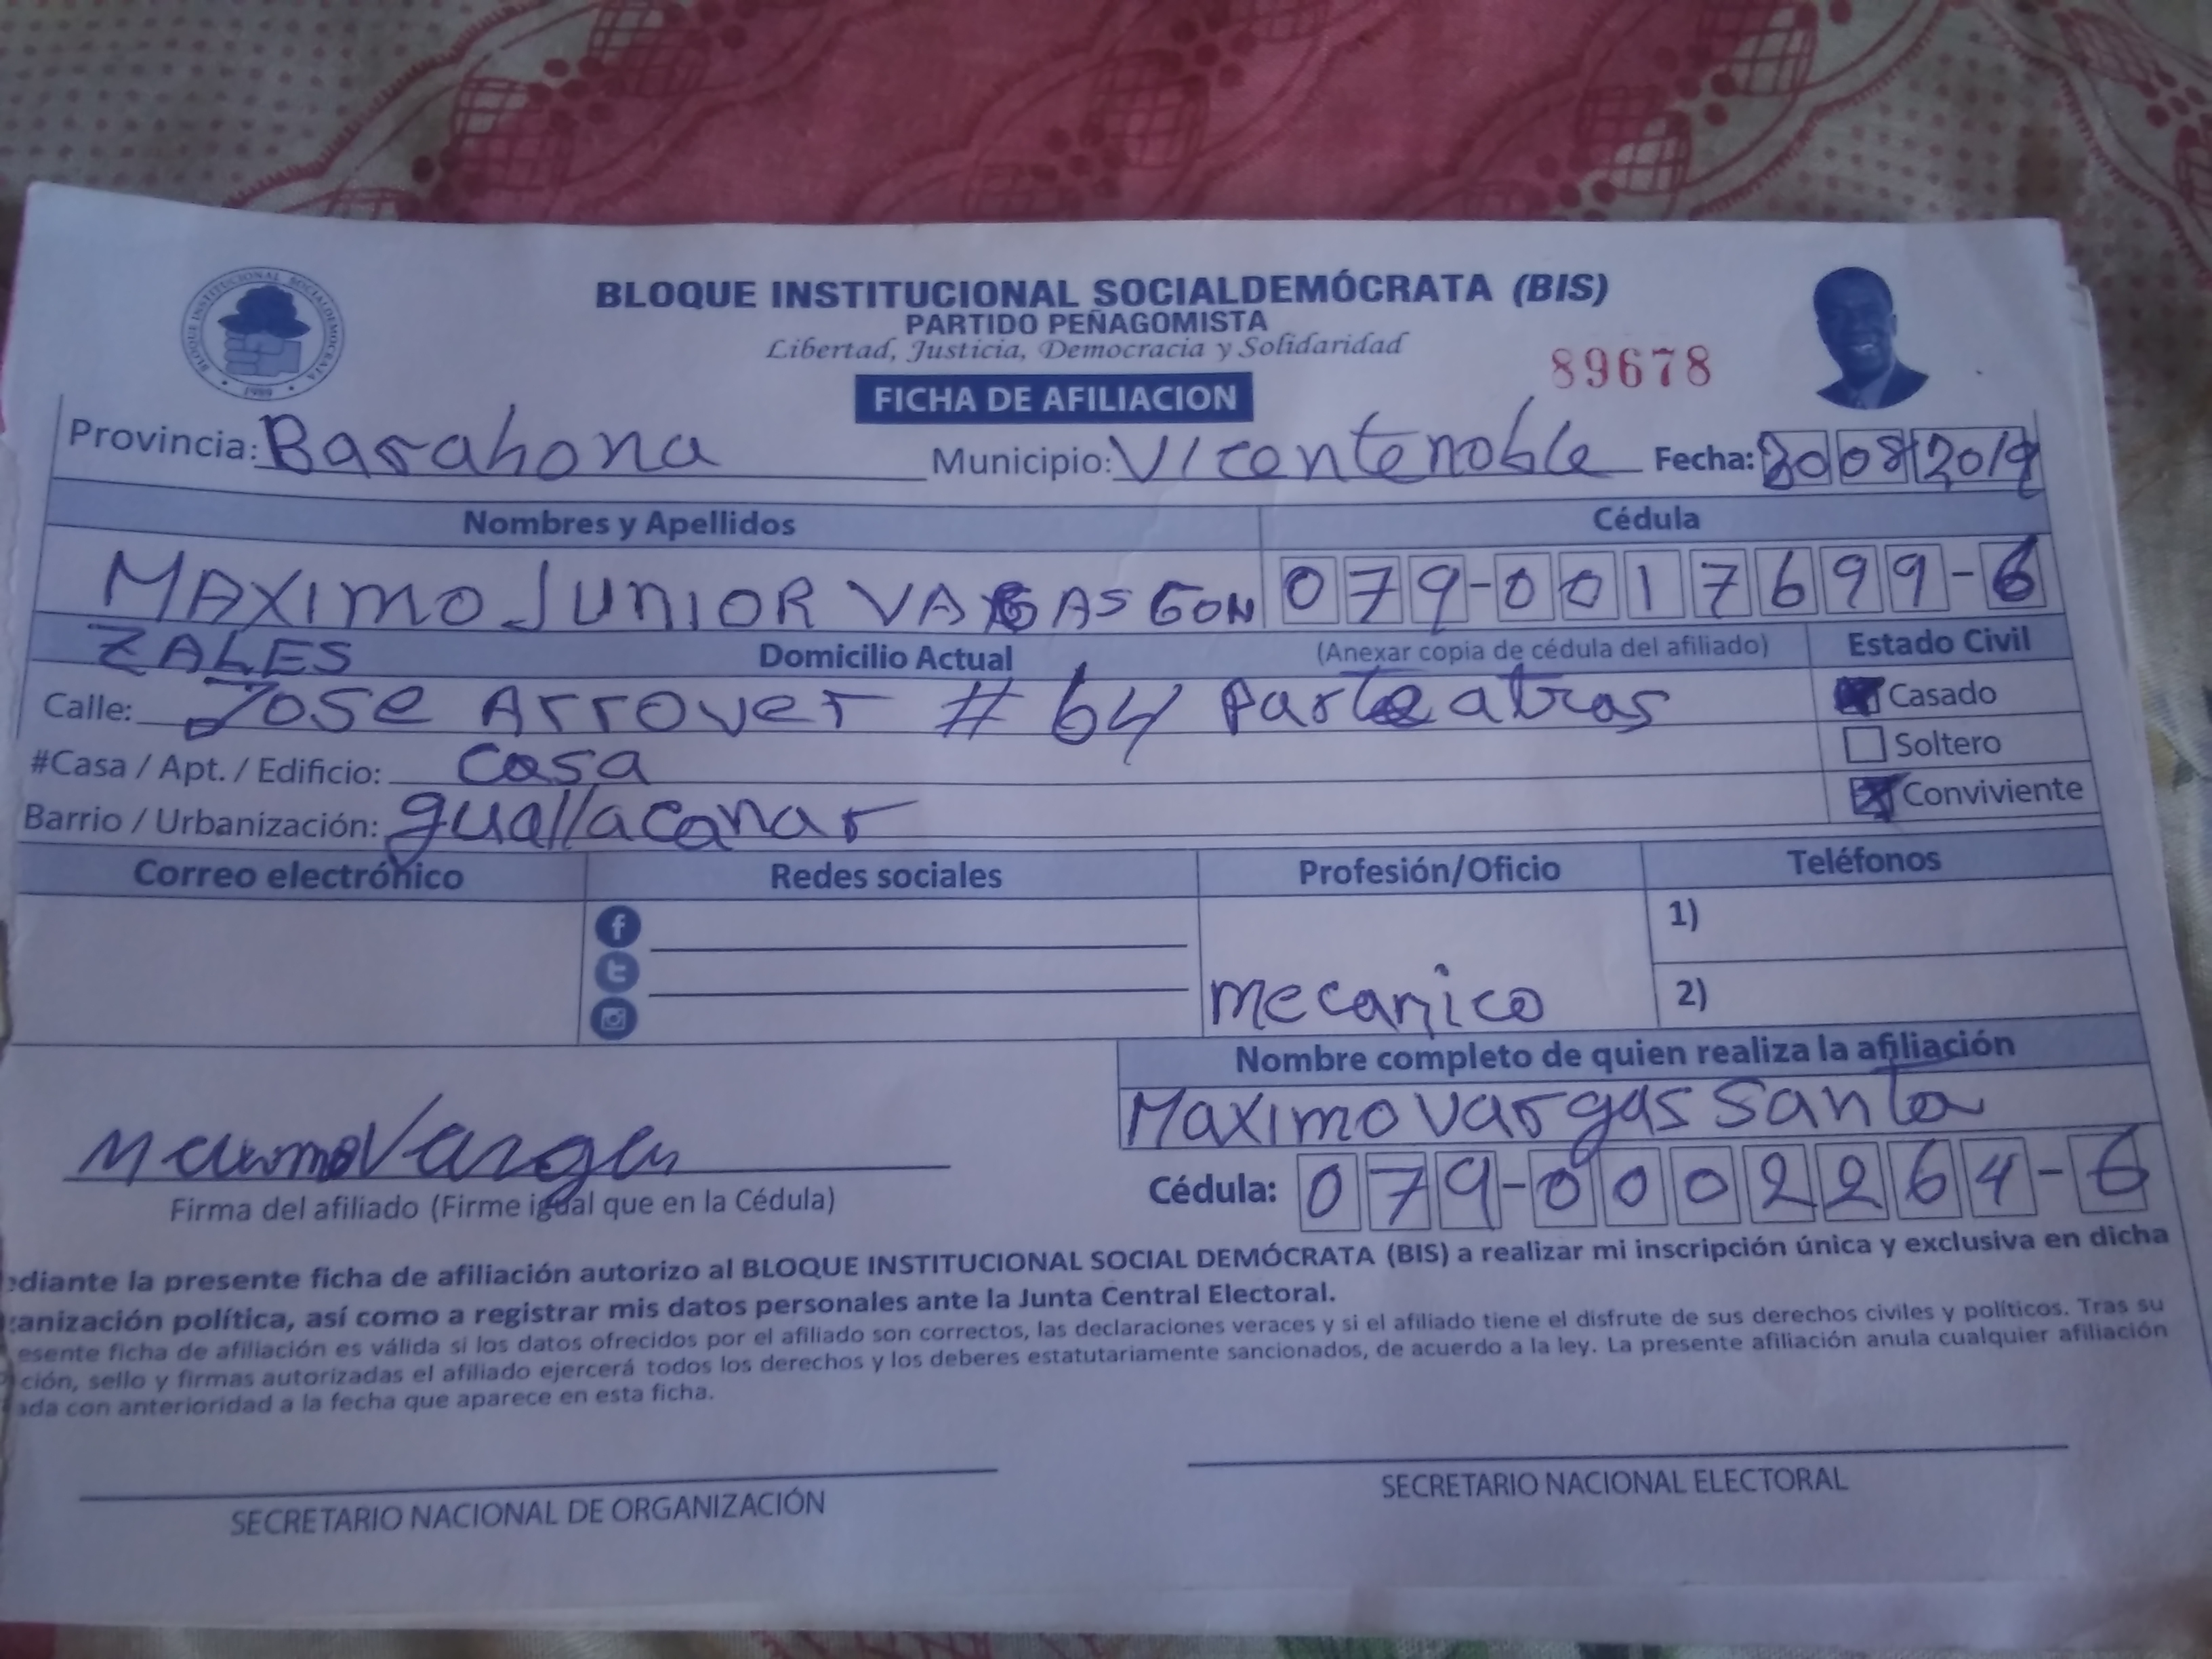 BLOQUE INSTITUCIONAL SOCIALDEMÓCRATA (BIS)
PARTIDO PEÑAGOMISTA
Libertad, Justicia, Democracia y Solidaridad
89678
FICHA DE AFILIACION
BLOQUE INSTITUCIONAL SOCIALDEMOCRATA
Provincia: Barahona Municipio: Vicentenoble Fecha: 30 08 2019
Nombres y Apellidos Cédula
MAXIMO JUNIOR VARGAS GON 079-0017699-6
ZALES
Domicilio Actual (Anexar copia de cédula del afiliado) Estado Civil
Calle: Jose Arrover # 64 Parte atras Casado
#Casa / Apt. / Edificio: casa Soltero
Barrio / Urbanización: guallacanar Conviviente
Correo electrónico Redes sociales Profesión/Oficio Teléfonos
1)
mecanico 2)
Nombre completo de quien realiza la afiliación
Maximo Vargas Santa
Cédula: 079-0002264-6
Firma del afiliado (Firme igual que en la Cédula)
ediante la presente ficha de afiliación autorizo al BLOQUE INSTITUCIONAL SOCIAL DEMÓCRATA (BIS) a realizar mi inscripción única y exclusiva en dicha
ganización política, así como a registrar mis datos personales ante la Junta Central Electoral.
esente ficha de afiliación es válida si los datos ofrecidos por el afiliado son correctos, las declaraciones veraces y si el afiliado tiene el disfrute de sus derechos civiles y políticos. Tras su
ción, sello y firmas autorizadas el afiliado ejercerá todos los derechos y los deberes estatutariamente sancionados, de acuerdo a la ley. La presente afiliación anula cualquier afiliación
ada con anterioridad a la fecha que aparece en esta ficha.
SECRETARIO NACIONAL DE ORGANIZACIÓN SECRETARIO NACIONAL ELECTORAL